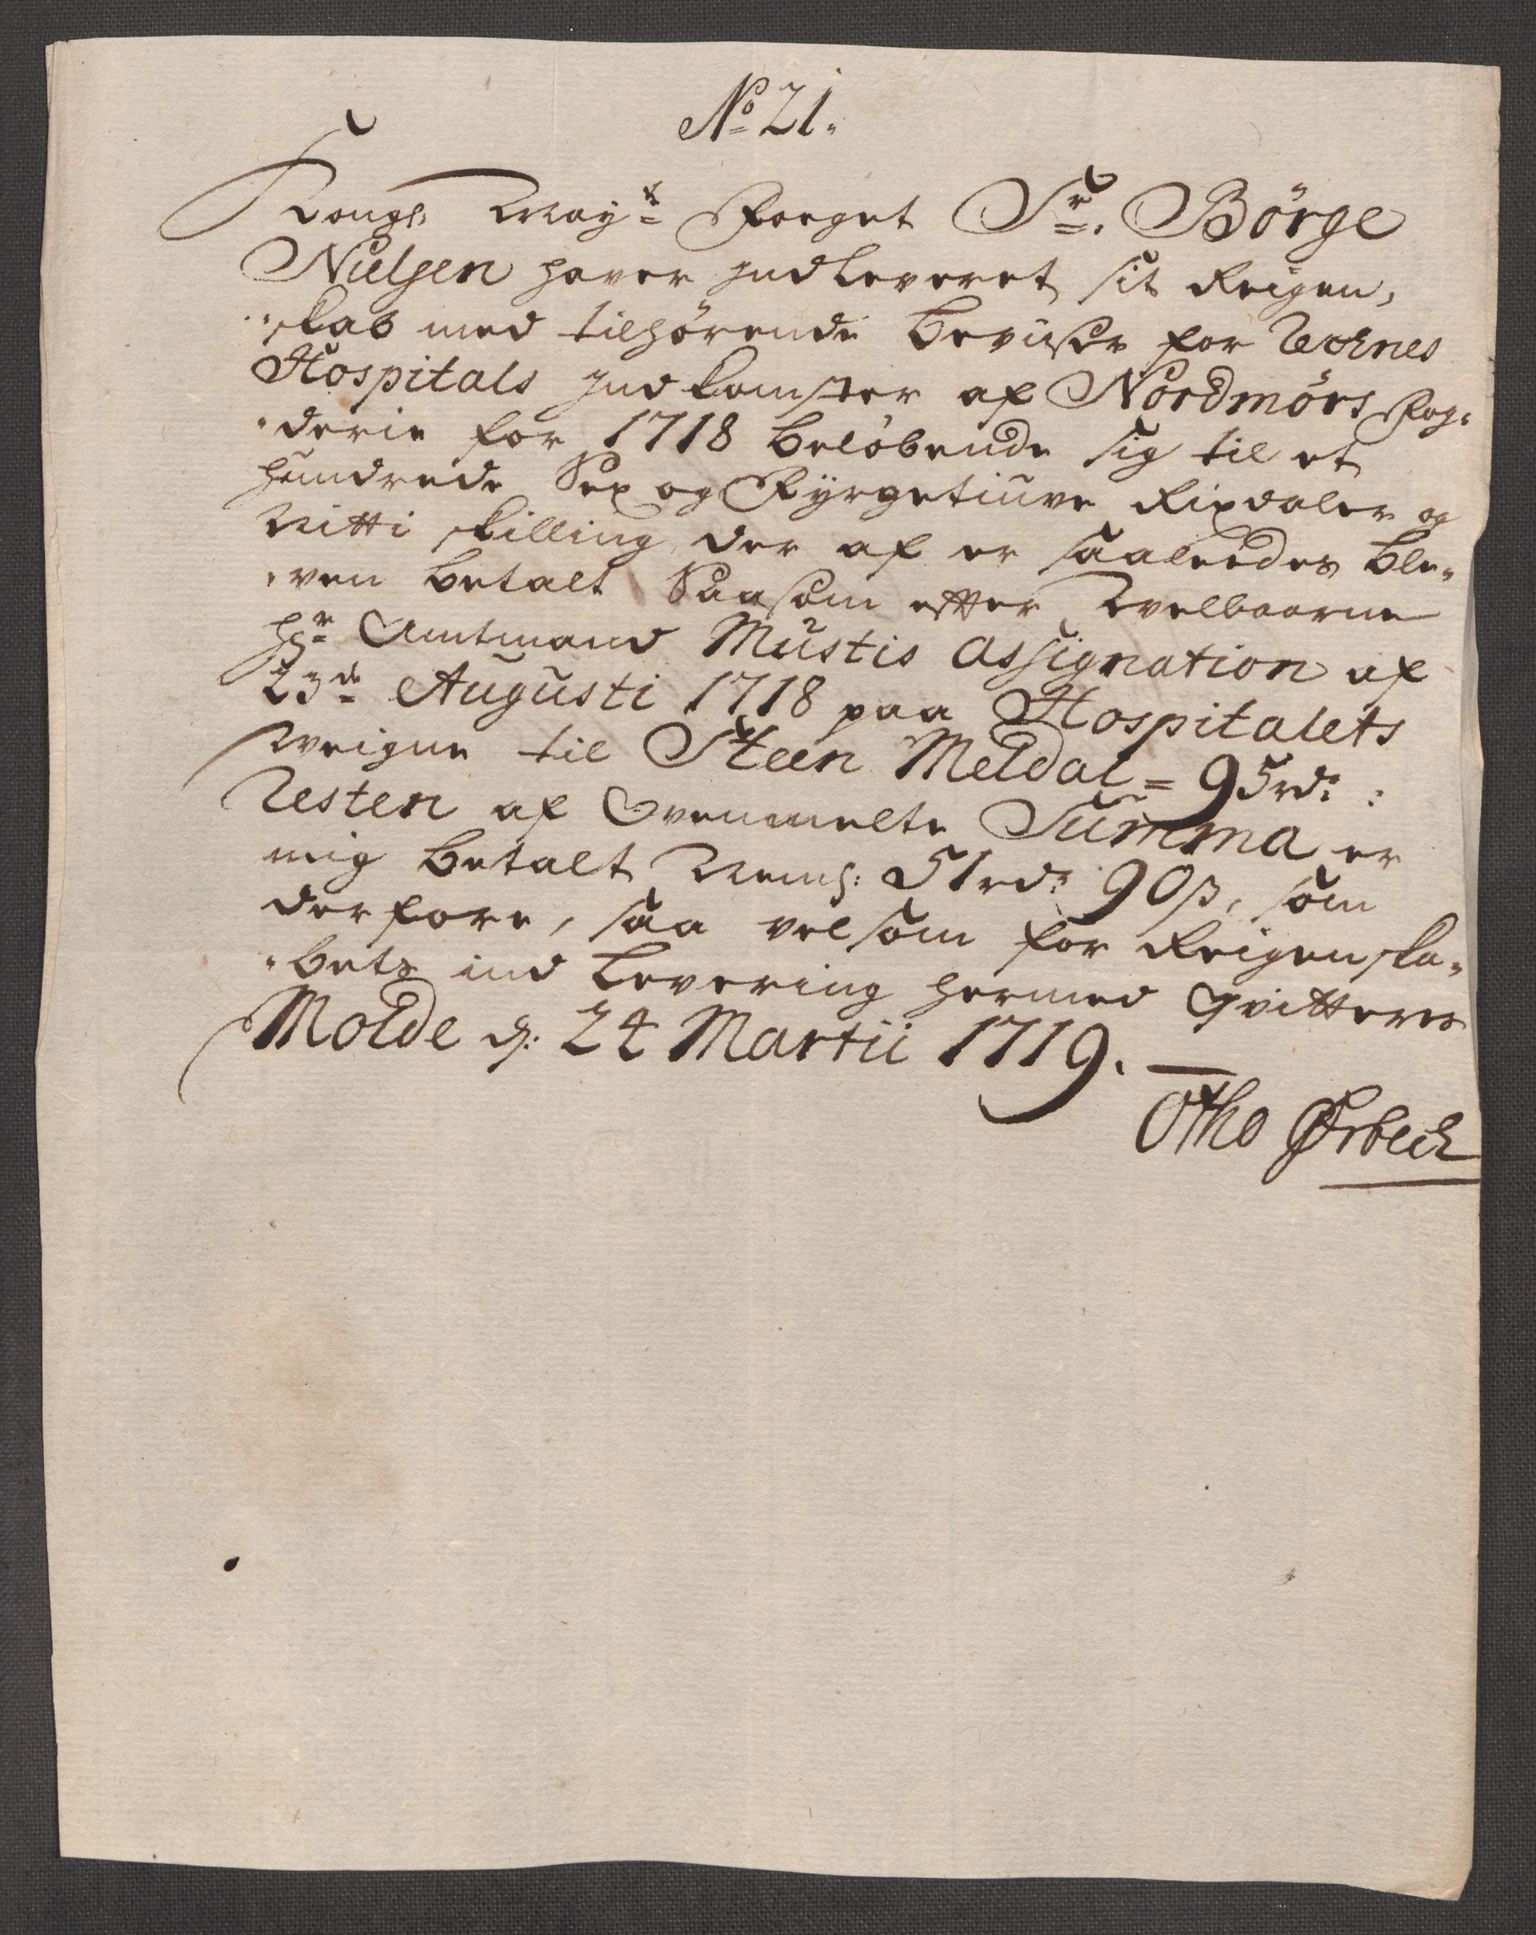 No 21.
Kongl: May:ts Foeget Sr. Børge
Nielsen haver indleveret sit Reigen,
skab med tilhørende beviiser for Reknes
Hospitals indkomster af Nordmørs Fog,
derie for 1718 beløbende sig til et
hundrede Sex og Fyrgetiuve Rixdaler og
Nitti skilling, der af er saaleedes ble,
ven betalt Saasom efter Welbaarne
hr Amtmand Mustis assignation af
23de Augusti 1718 paa Hospitalets
weigne til Steen Meldal = 95 rdr:
Resten af Ovenmelte Summa er
mig betalt Neml: 51 rdr 90 s, som
derfore, saa vel som for Reigenska,
bets ind levering hermed qvitteres
Molde d: 24 Martii 1719.
Otho Ørbech